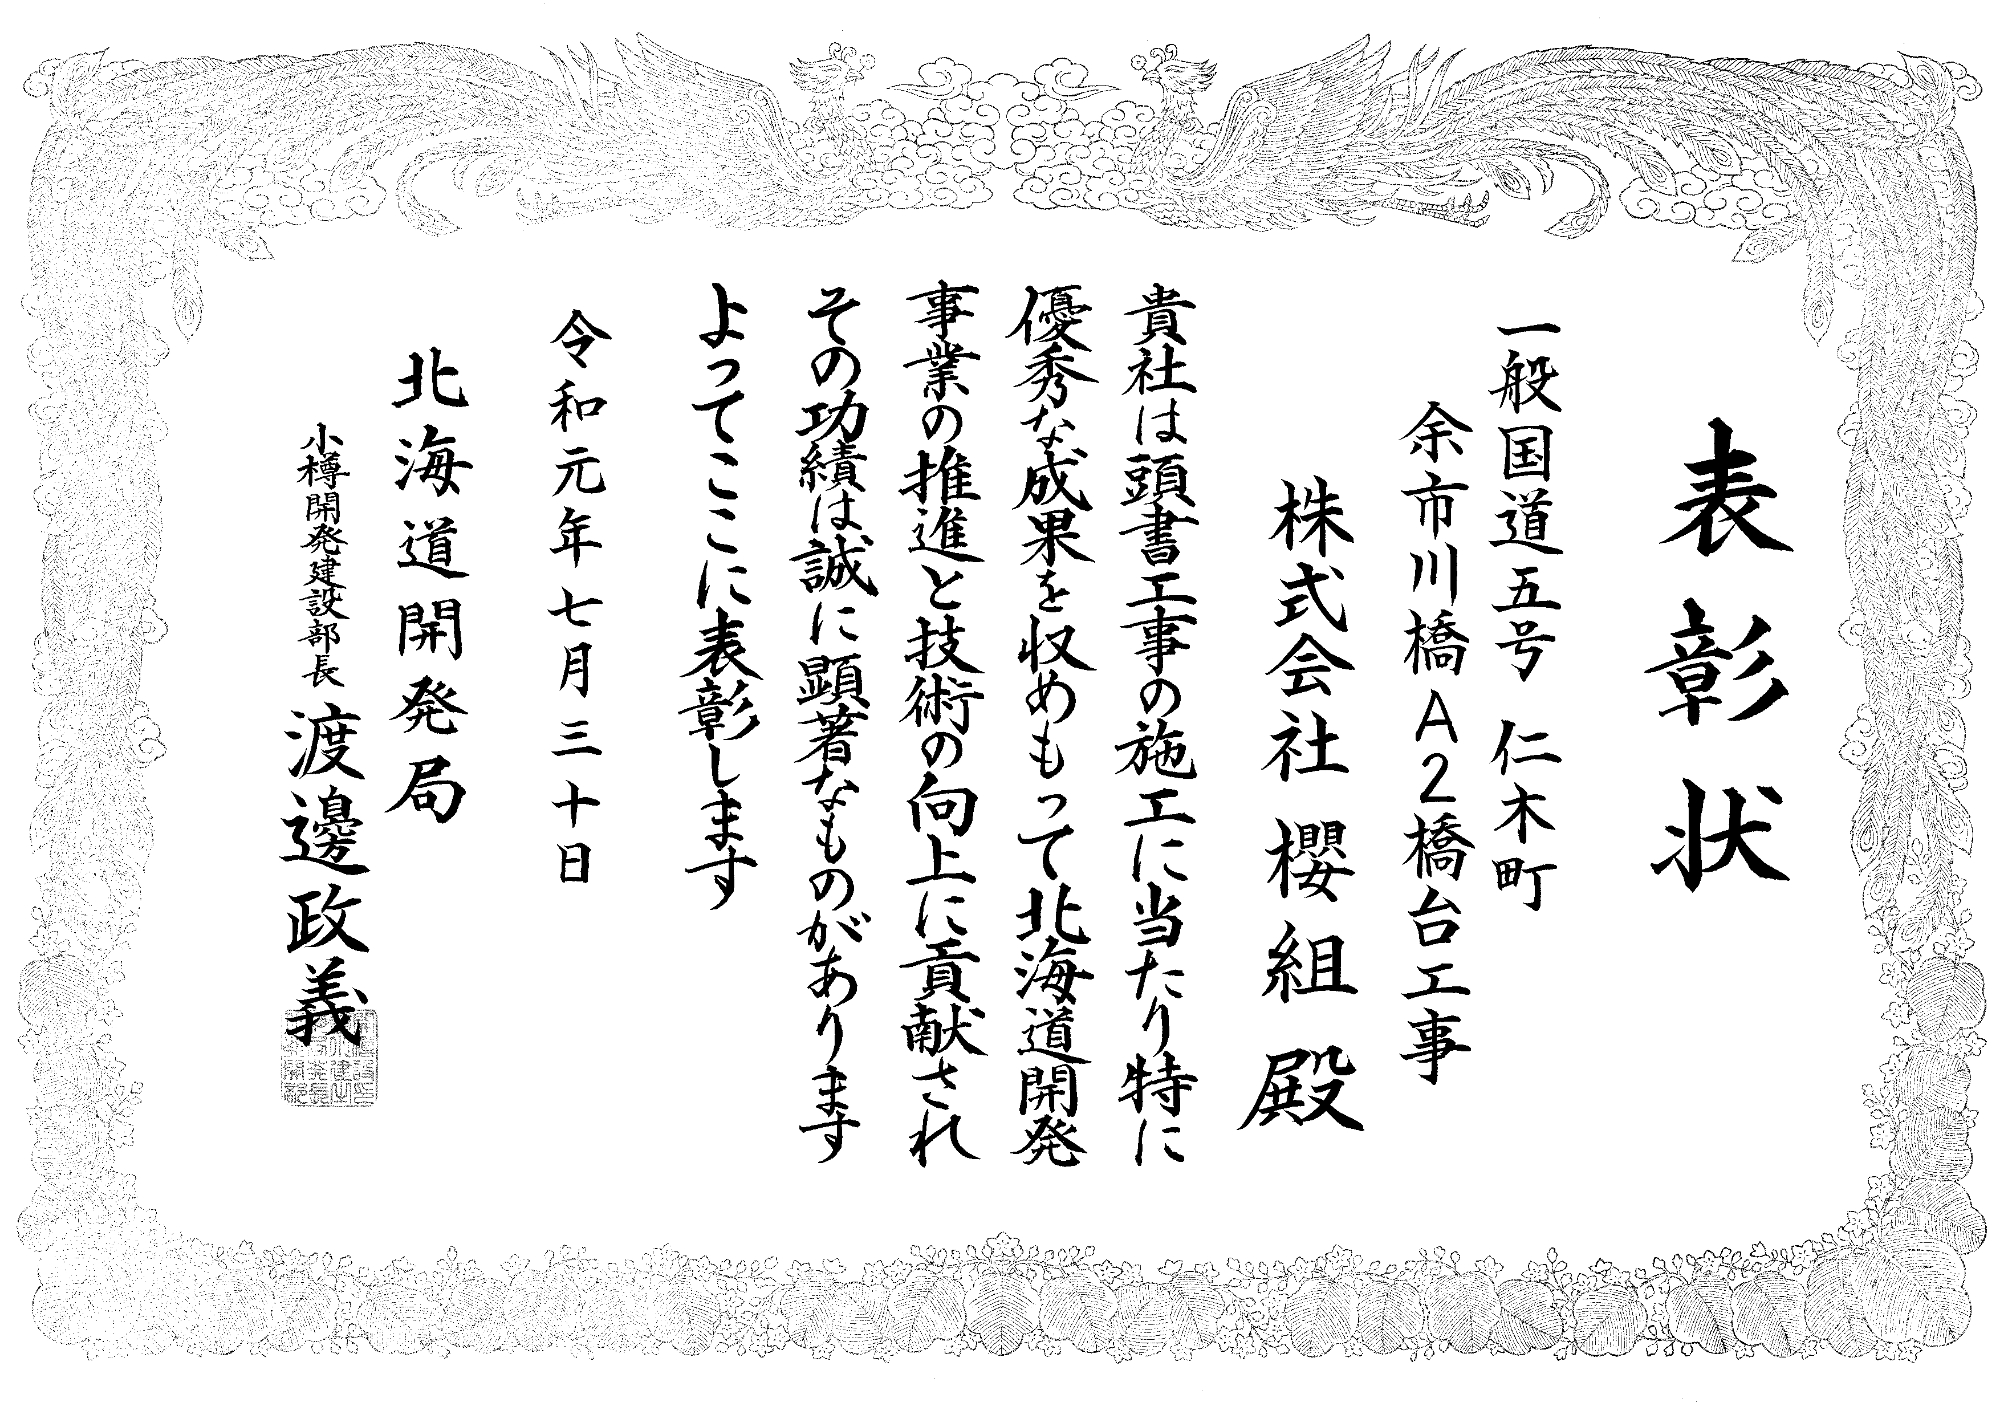 表彰状
一般国道五号 仁木町
余市川橋A2橋台工事
株式会社 櫻組 殿
貴社は頭書工事の施工に当たり特に
優秀な成果を収めもって北海道開発
事業の推進と技術の向上に貢献され
その功績は誠に顕著なものがあります
よってここに表彰します
令和元年七月三十日
北海道開発局
小樽開発建設部長 渡邊政義